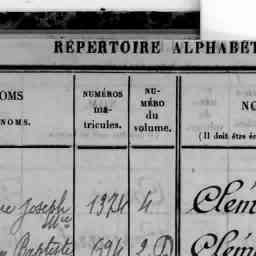 RÉPERTOIRE ALPHABET
OMS
NOMS.
NUMÉROS
ma-
tricules.
NU-
MÉRO
du
volume.
NO
(Il doit être é
Joseph 1374 4 Clém
Mie
Baptiste 694 2.D Clém